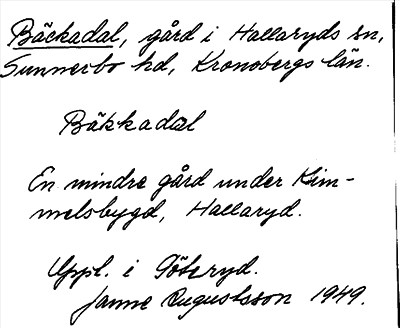 Bäckadal, gård i Hallaryds sn,
Sunnerbo hd, Kronobergs län.
Bäkkadal
En mindre gård under Kim-
melsbygd, Hallaryd.
Uppl. i Göteryd.
Janne Augustsson 1949.